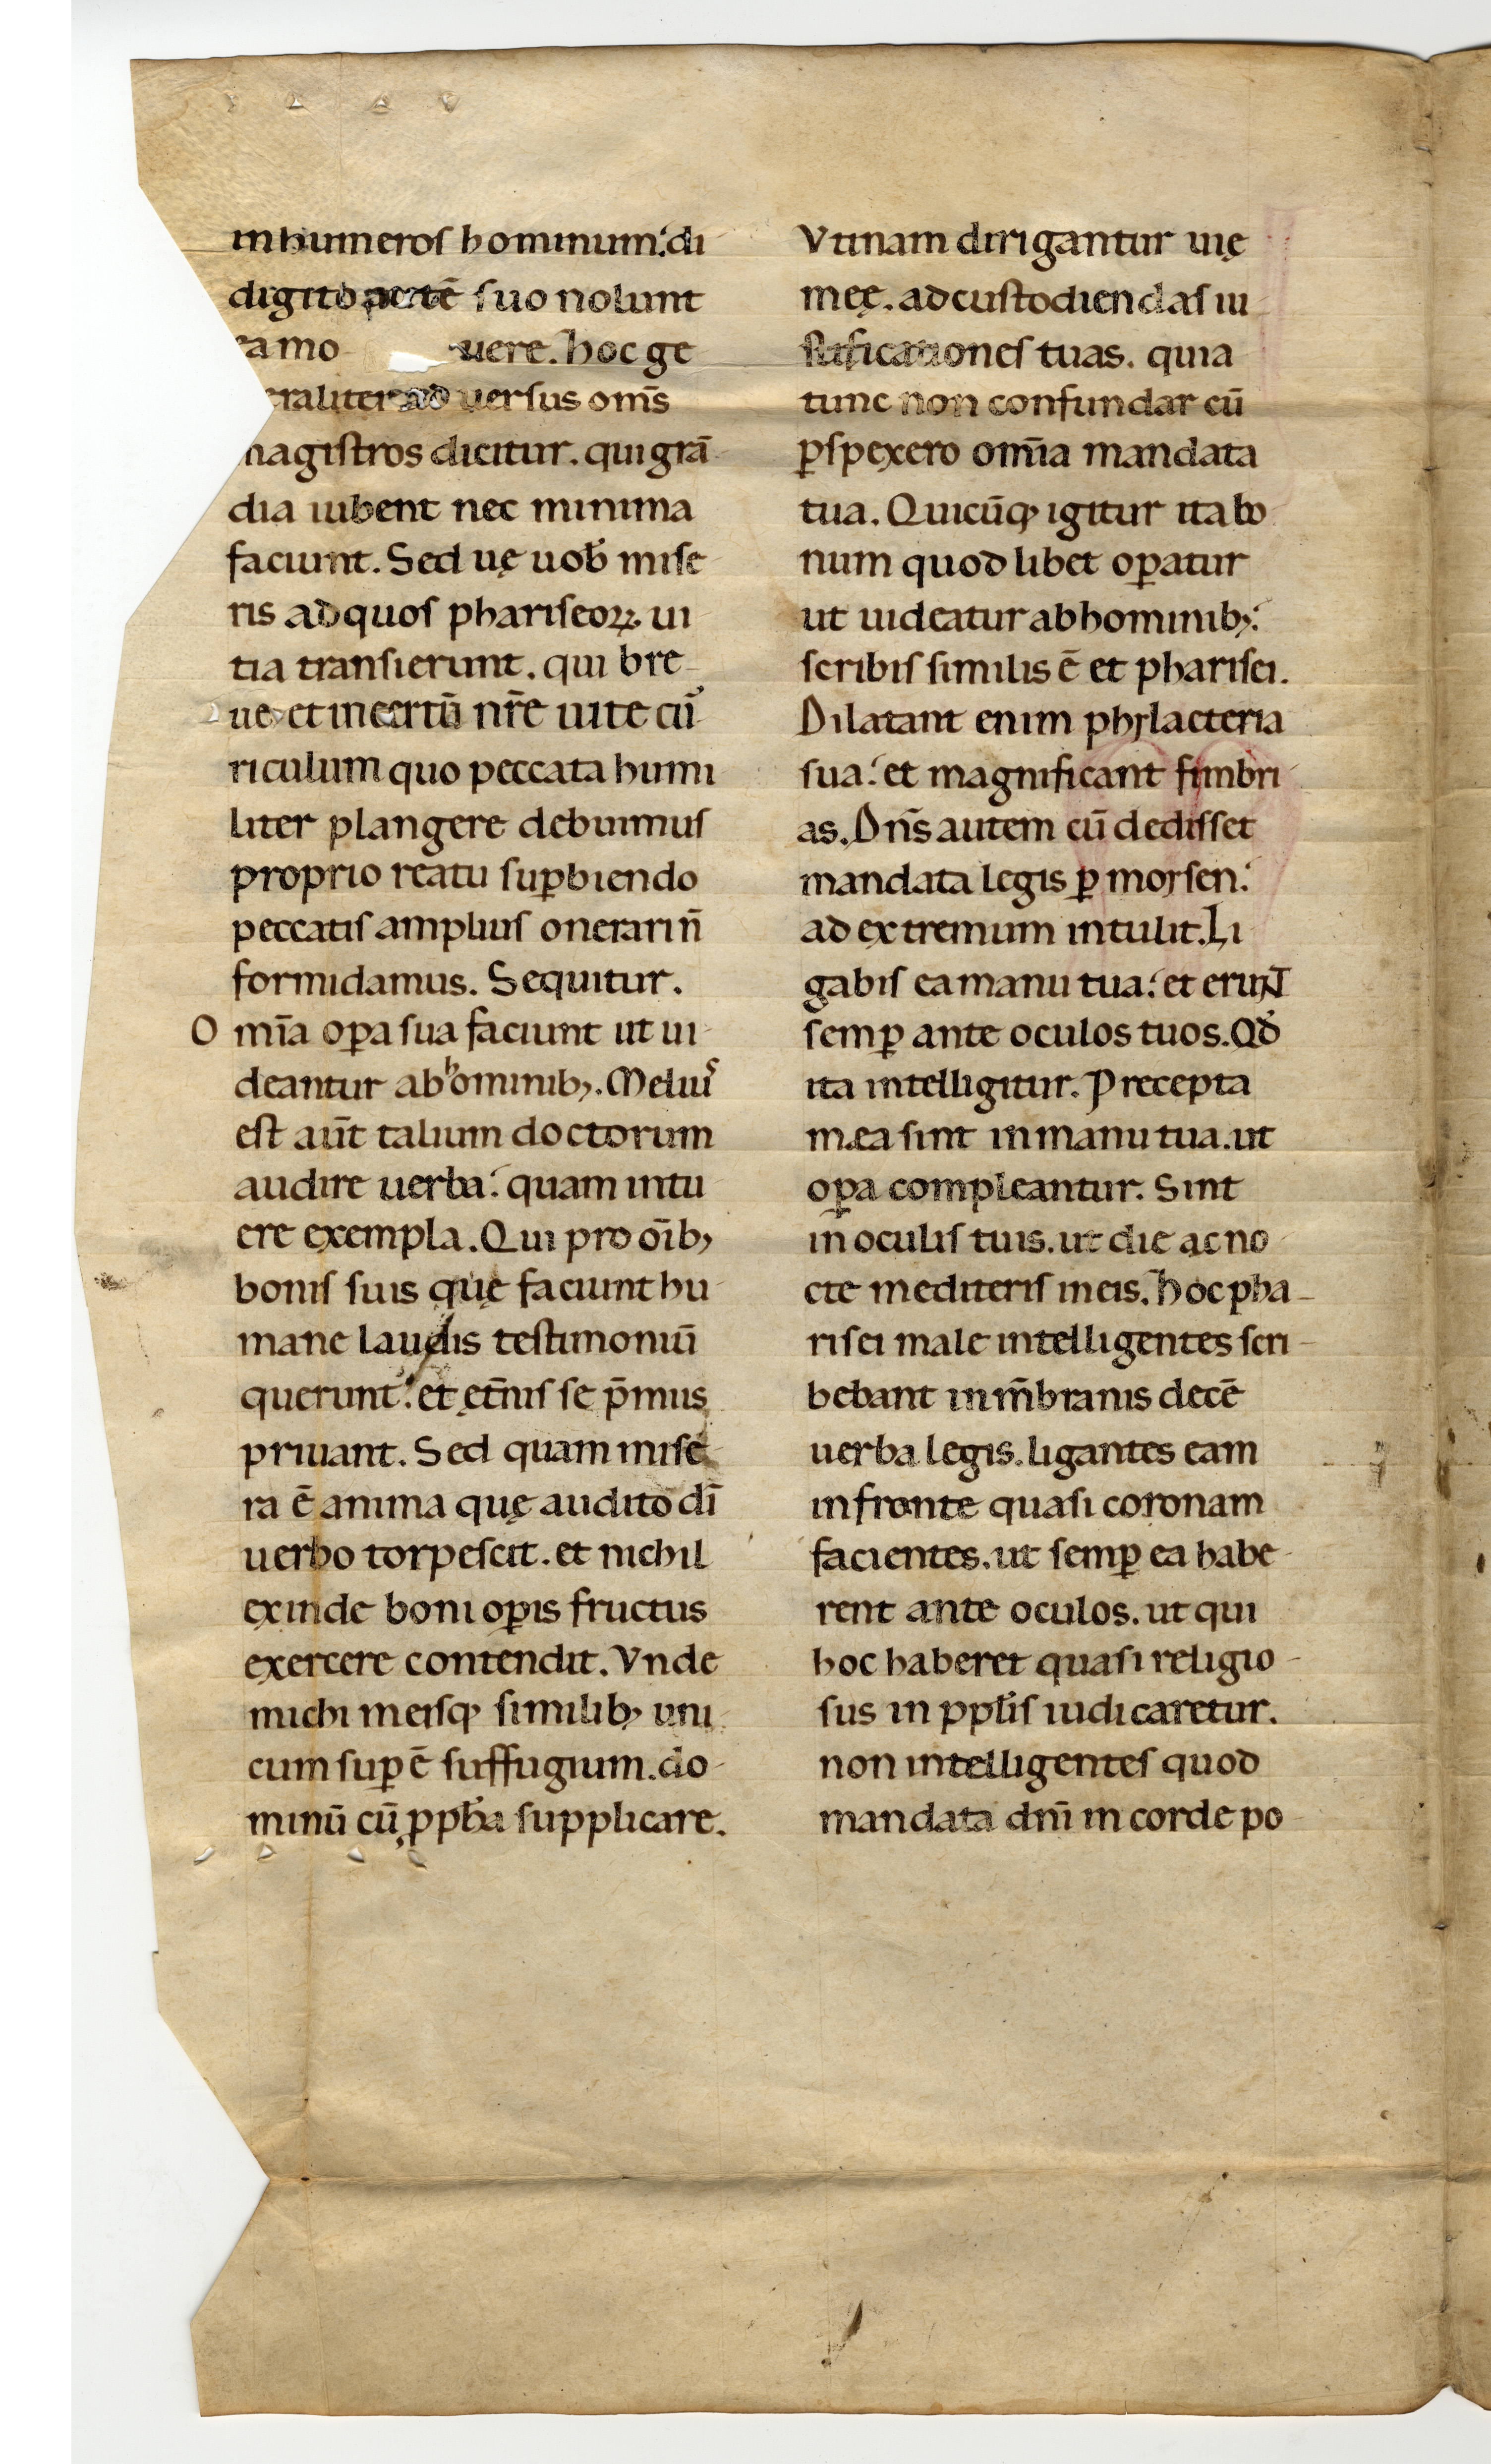 in humeros hominum: di
digito aertē suo nolunt
ea mo uere. hoc ge
eraliter ad uersus om̄s
magistros dicitur. qui grā
dia iubent nec minima
faciunt. Sed uę uob̄ mise
ris ad quos phariseoꝝ ui
tia transierunt. qui bre
ue et incertū nr̄e uite cū
riculum quo peccata humi
liter plangere debuimus
proprio reatu suꝑbiendo
peccatis amplius onerari n̄
formidamus. Sequitur.
Omīa oꝑa sua faciunt ut ui
deantur ab hominib;. Melius
est aūt talium doctorum
audire uerba: quam intu
ere exempla. Qui pro oīb;
bonis suis quę faciunt hu
mane laudis testimoniū
querunt: et ęt̄nis se p̄mus
priuant. Sed quam mise
ra ē anima quę audito dī
uerbo torpescit. et nichil
exinde boni oꝑis fructus
exercere contendit. Vnde
michi meisq; similib; uni
cum suꝑ ē suffugium. do
minū cū ppb̄a supplicare.
Vtinam dirigantur uię
meę. ad custodiendas iu
stificationes tuas. quia
tunc non confundar cū
ꝑspexero omīa mandata
tua. Quicūq; igitur ita bo
num quod libet oꝑatur
ut uideatur ab hominib;:
scribis similis ē et pharisei.
Dilatant enim phylacteria
sua: et magnificant fimbri
as. Dn̄s autem cū dedisset
mandata legis ꝑ moysen:
ad extremum intulit. Li
gabis ea manu tua: et erunt
semꝑ ante oculos tuos. Qd̄
ita intelligitur. Precepta
mea sint in manu tua. ut
oꝑa compleantur. Sint
in oculis tuis. ut die ac no
cte mediteris in eis. hoc pha
risei male intelligentes scri
bebant in m̄branis decē
uerba legis. ligantes eam
in fronte quasi coronam
facientes. ut semꝑ ea habe
rent ante oculos. ut qui
hoc haberet quasi religio
sus in ppl̄is iudicaretur.
non intelligentes quod
mandata dnī in corde po